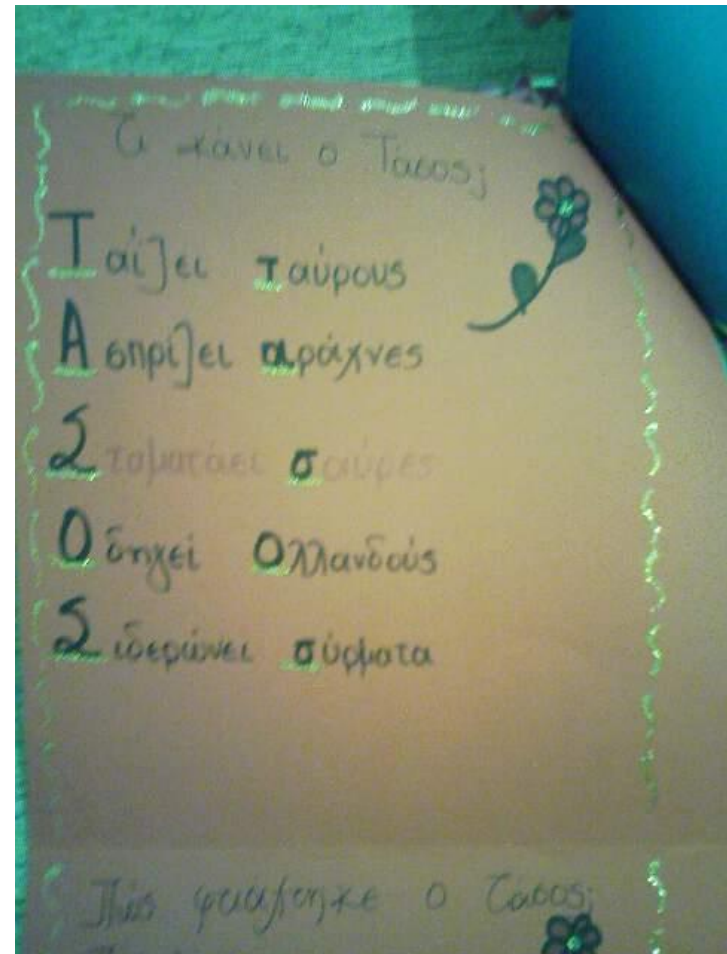 Τι κάνει ο Τάσος;
Ταΐζει ταύρους
Ασπρίζει αράχνες
Σταματάει σαύρες
Οδηγεί Ολλανδούς
Σιδερώνει σύρματα
Πώς φτιάχτηκε ο Τάσος;